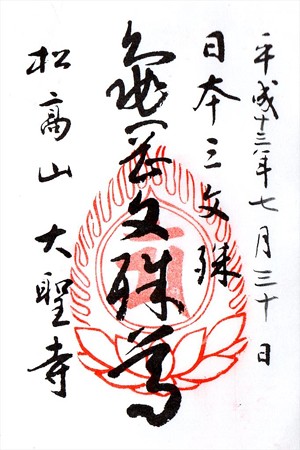 平成十三年七月三十日
日本三文殊
亀岡文殊尊
松高山大聖寺